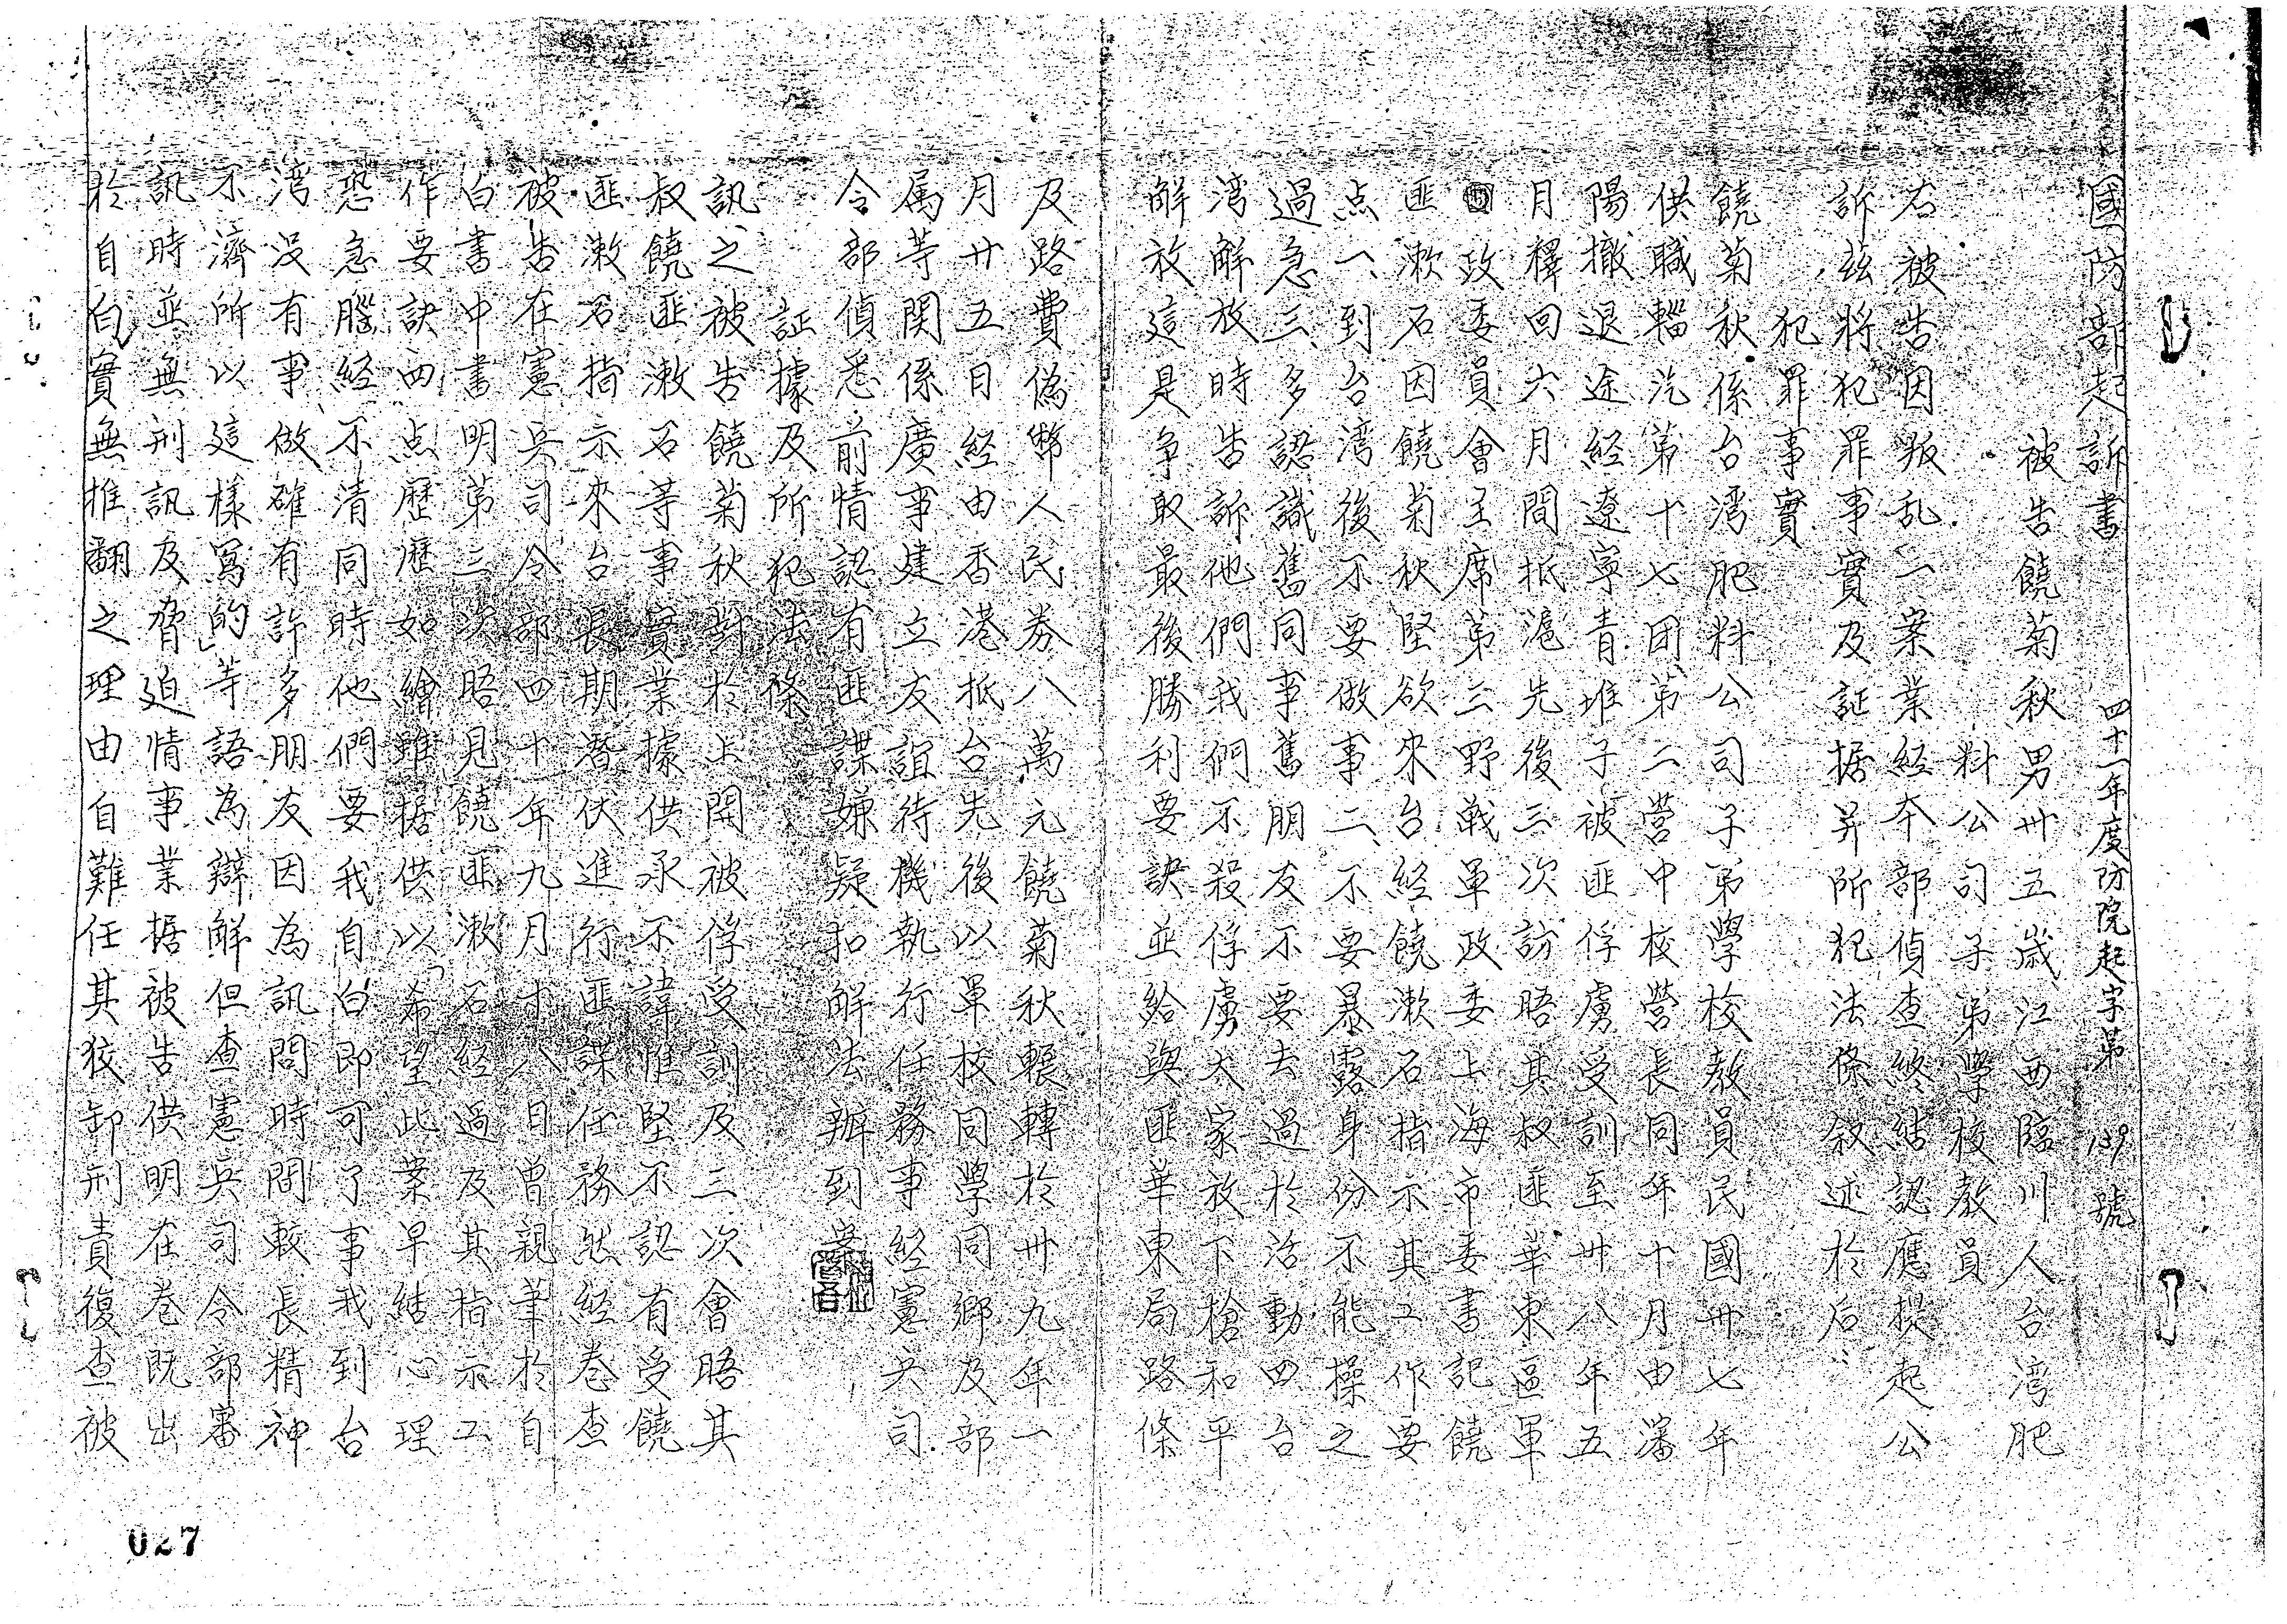 國防部起訴書　四十一年度防院起字第139號
被告饒菊秋男卅五歲江西臨川人台湾肥
料公司子弟學校教員
右被告因叛乱一案業経本部偵查終結認應提起公
訴茲將犯罪事實及証据并所犯法條叙述於后：
犯罪事實
饒菊秋係台湾肥料公司子弟學校教員民國卅七年
供職輜汽第十七团第二營中校營長同年十月由瀋
陽撤退途経遼寧青堆子被匪俘虜受訓至卅八年五
月釋回六月間抵滬先後三次訪晤其叔匪華東區軍
政委員會主席第三野戦軍政委上海市委書記饒
匪漱石因饒菊秋堅欲來台経饒漱石指示其工作要
点一、到台湾後不要做事二、不要暴露身份不能操之
過急三、多認識舊同事舊朋友不要去過於活動四台
湾解放時告訴他們我們不殺俘虜大家放下槍和平
解放這是争取最後勝利要訣並給與匪華東局路條
及路費偽幣人民券八萬元饒菊秋輾轉於卅九年一
月廿五日経由香港抵台先後以軍校同學同鄉及部
属等関係廣事建立友誼待機執行任務事経憲兵司
令部偵悉前情認有匪諜嫌疑扣解法辦到案
証據及所犯法條
訊之被告饒菊秋對於上開被俘受訓及三次會晤其
叔饒匪漱石等事實業據供承不諱惟堅不認有受饒
匪漱石指示來台長期潛伏進行匪諜任務然経卷查
被告在憲兵司令部四十年九月十八日曾親筆於自
白書中書明第三次晤見饒匪漱石経過及其指示工
作要訣四点歷歷如繪雖据供以「希望此案早結心理
恐急腦経不清同時他們要我自白即可了事我到台
湾没有事做確有許多朋友因為訊問時間較長精神
不濟所以這樣寫的」等語為辯解但查憲兵司令部審
訊時並無刑訊及脅迫情事業据被告供明在卷既出
於自白實無推翻之理由自難任其狡卸刑責復查被
027